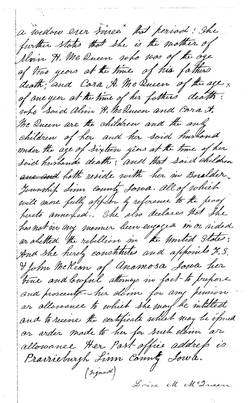 a widow ever since that period: She
further states that she is the mother of
Alvin H. McQueen who was of the age
of two years at the time of his fathers
death; and Cora A. McQueen of the age
of one year at the time of her fathers death
who said Alvin H. McQueen and Cora A
McQueen are the children and the only
children of her and her said husband
under the age of sixteen years at the time of her
said husbands death; and that said children
both reside with her in Boulder
Township Linn County Iowa. all of which
will more fully appear by reference to the proof
hereto annexed. She also declares that She
has not in any manner been engaged in or aided
or abetted the rebellion in the United States;
And she hereby constitutes and appoints
& John McKean of Anamosa Iowa her
true and lawful attorneys in fact to prepare
and prosecute her claim for any pension
or allowance to which she may be intitled
and to receive the certificate which may be issued
or order made to her for such claim or
allowance Her Post office address is
Prairieburgh Linn County Iowa.
(Signed)
Louisa M. McQueen